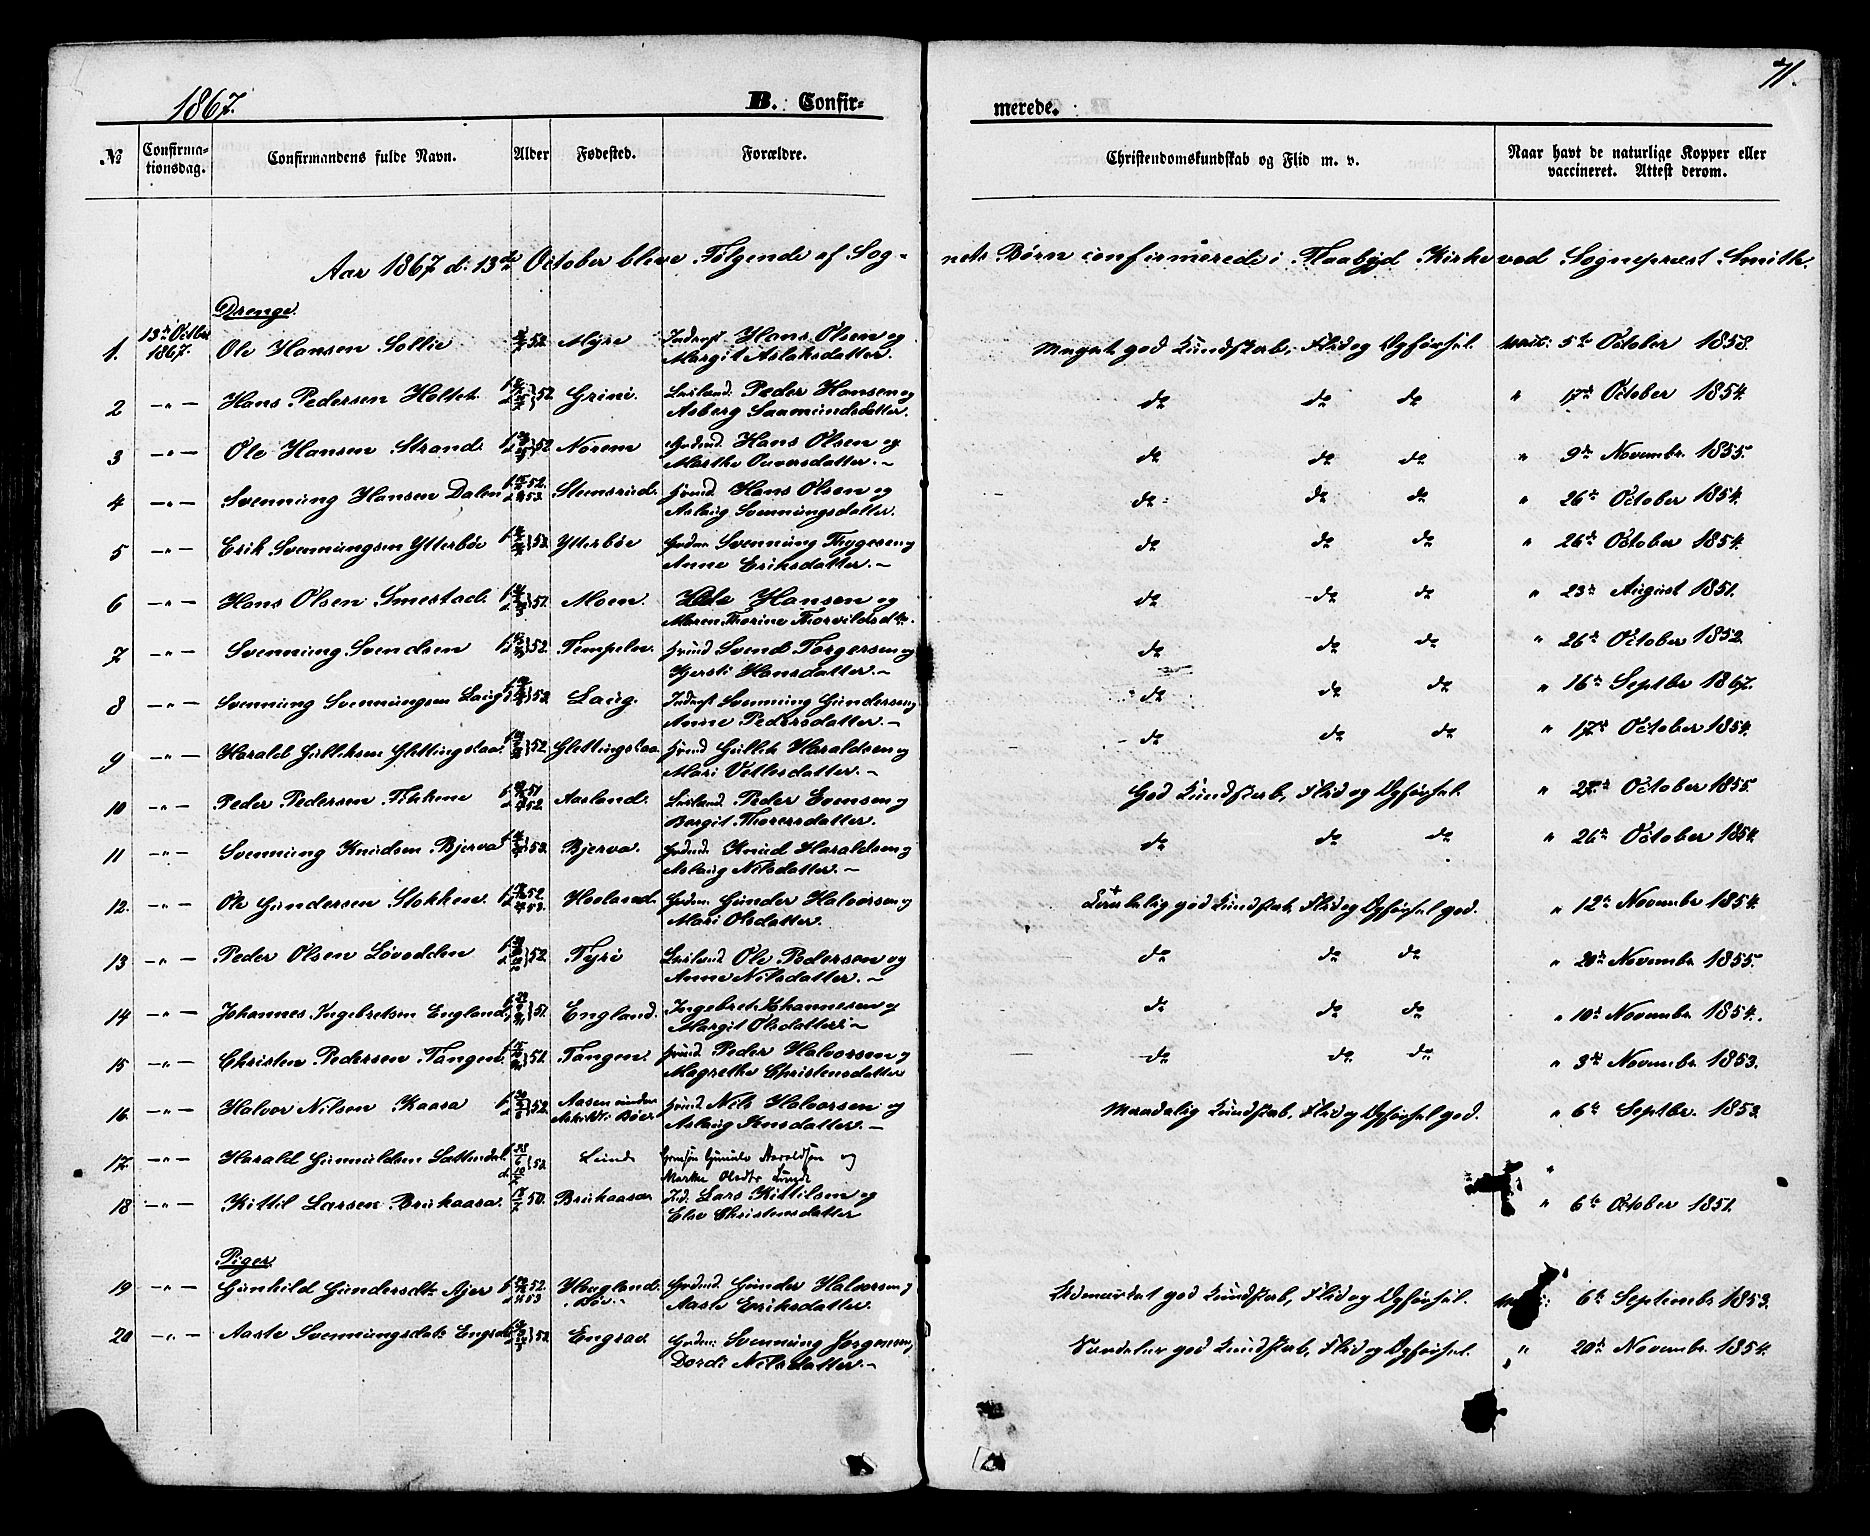 1867.
B. Confir-
merede.
71.
№
Confirma-
tionsdag.
Confirmandens fulde Navn.
Alder
Fødested.
Forældre.
Christendomskundskab og Flid m. v.
Naar havt de naturlige Kopper eller
vaccineret. Attest derom.
Aar 1867 d: 13de October bleve Følgende af Sog-
nets Børn confirmerede i Flaabyd Kirke ved Sognepræst Smith.
Drenge
1. 13de Octber 1867. Ole Hansen Sollie 52 Myre Hans Olsen og
Margit Aslaksdatter. Meget god Kundskab, Flid og Opførsel. 5te October 1858.
2 -"- Hans Pedersen Holtet 52 Grini. Peder Hansen og
Asberg Saamundsdatter. do do do " 17de October 1854.
3 -"- Ole Hansen Strand 52 Norem Hans Olsen og
Marthe Gunersdatter. do do do " 9de Novembr. 1855.
4 -"- Svenning Hansen Dalen 52. 53. Stensrud. Hans Olsen og
Aslaug Svenningsdatter. do do do " 26de October 1854.
5 -"- Erik Svenningsen Ytterbøe 52 Ytterbøe Svenning Thygesen og
Anne Eriksdatter. do do do " 26de October 1854.
6 -"- Hans Olsen Smestad 51. Moen. Ole Hansen og
Maren Thorine Thorvildsdtr. do do do " 23de August 1851.
7 -"- Svenning Svendsen 52. Tempelen Svend Torgersen og
Kjersti Hansdatter. do do do " 26de October 1852.
8 -"- Svenning Svenningsen Laug 52 Laug. Svenning Gundersen og
Anne Pedersdatter. do do do " 16de Septbr 1867.
9 -"- Harald Gulliksen Glittingstaa 52 Glittingstaa. Gullik Haraldsen og
Mari Vetlesdatter. do do do " 17de October 1854.
10 -"- Peder Pedersen Fikkene 51 52. Aasland. Peder Evensen og
Bergit Thoresdatter. God Kundskab, Flid og Opførsel. " October 1855.
11 -"- Svenning Knudsen Bjerva 52. Bjerva. Knud Haraldsen og
Aslaug Nilsdatter. do do do " 26de October 1854.
12. -"- Ole Gundersen Stokken. 52. 53. Hoeland. Gunder Halvorsen og
Mari Olsdatter. Temmelig god Kundskab, Flid og Opførsel god. " 12te Novembr 1854.
13 -"- Peder Olsen Løvodden 52. Tyri Ole Pedersen og
Anne Nilsdatter. do do do " 20de Novembr. 1855.
14 -"- Johannes Ingebretsen England 51. England. Ingebret Johannesen og
Margit Olsdatter. do do do " 10de Novembr. 1854.
15 -"- Christen Pedersen Tangen 52. Tangen. Peder Halvorsen og
Magrethe Christensdatter do do do " 3de Novembr. 1853.
16. -"- Halvor Nilsen Kaasa 52. Aasen under Bøer Nils Halvorsen og
Aslaug Jensdatter. Maadelig Kundskab, Flid og Opførsel god. " 6te Septbr. 1853.
17. -"- Harald Gunnuldsen 52. Lunde Haraldsen og
Marthe Olsdtr Lunde "
18 -"- Kittil Larsen Brukaasa 50. Brukaasa Lars Kittilsen og
Else Christensdatter " 6te October 1851.
Piger
19 -"- Gunhild Gundersdtr. Ajer 52. 53 Haugland Bøe Gunder Halvorsen og
Aaste Eriksdatter. Udmærket god Kundskab, Flid og Opførsel. 6te Septembr 1853.
20 -"- Aaste Svenningsdatr. Engrav 52. Engrav Svenning Jørgensen,
Dordi Nilsdatter. Særdeles god Kundskab, Flid og Opførsel. " 20de Novembr. 1854.